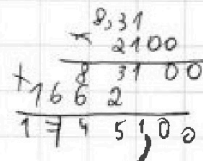 8,31
× 2100
8 31 00
+ 16 6 2
1 7 4 5 1, 0 0